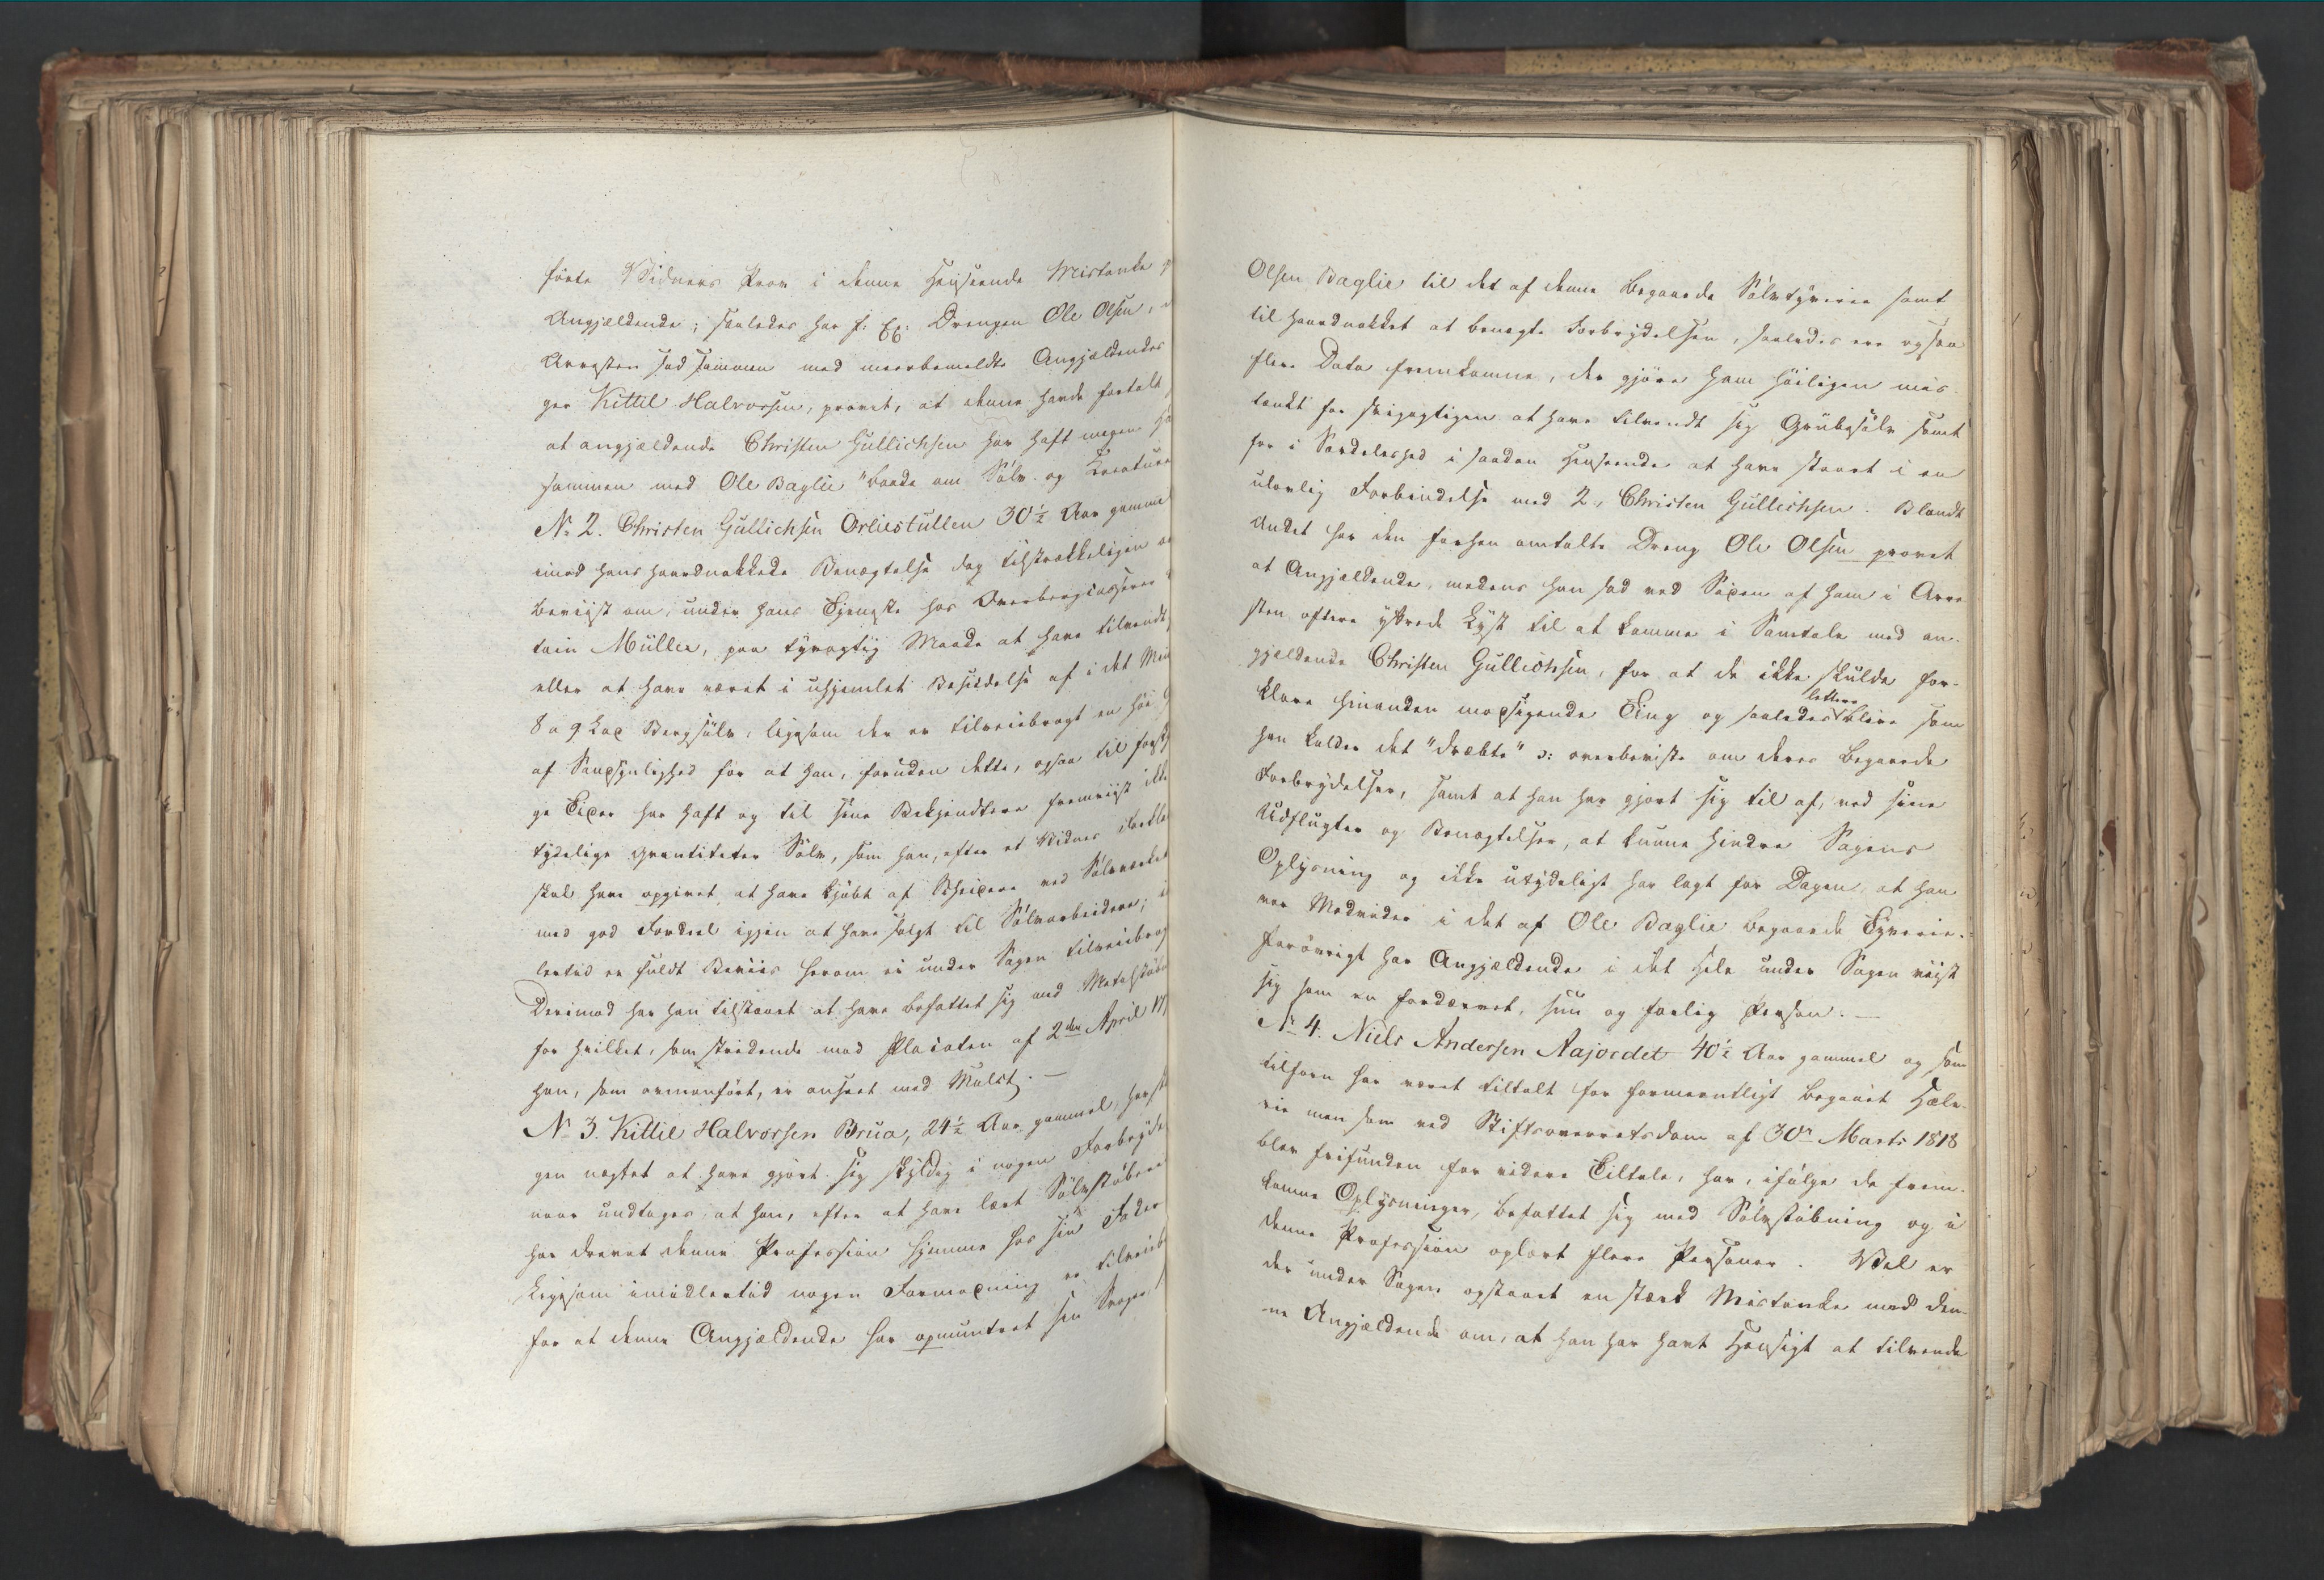 førte Vidners Prov i denne Henseende Mistanke
Angjældende; saaledes har f: Ex: Drengen Ole Olsen,
Arresten sad sammen med meerbemeldte Angjældendes
ger Kittil Halvorsen, provet, at denne havde fortalt
at angjældende Christen Gullichsen har haft megen
sammen med Ole Baglie "baade om Sølv og Kreature
No 2. Christen Gullichsen Orliestullen 30½ Aar gamme
imod hans haardnakkede Benægtelse dog tilstrækkeligen
beviist om, under hans Tjeneste hos Overbergcasserer
tain Müller, paa tyvagtig Maade at have tilvendt
eller at have været i uhjemlet Besiddelse af i det Min
8 a 9 Lod Bergsølv, ligesom der er tilveiebragt en høi
af Sandsynlighed for at han, foruden dette, ogsaa til forskj
ge Tider har haft og til sine Bekjendtere fremviist ikke
tydelige Qvantiteter Sølv, som han, efter et Vidnes
skal have opgivet, at have kjøbt af Scheidere ved Sølvværket
med god Fordeel igjen at have solgt til Sølvarbeidere;
lertid er fuldt Beviis herom ei under Sagen tilveiebrag
Derimod har han tilstaaet at have befattet sig med Metalstøbn
for hvilket, som stridende mod Placaten af 2den April
han, som ovenanført, er anseet med Mulct. —
No 3. Kittil Halvorsen Brua, 24½ Aar gammel, har
gen nægtet at have gjort sig skyldig i nogen Forbryde
naar undtages, at han, efter at have lært Sølvstøberi
har drevet denne Profession hjemme hos sin Fader
Ligesom imidlertid nogen Formodning er tilveieb
for at denne Angjældende har opmuntret sin Svoger
Olsen Baglie til det af denne begaaede Sølvtyverie samt
til haardnakket at benægte Forbrydelsen, saaledes ere ogsaa
flere Data fremkomne, der gjøre ham høiligen mis-
tænkt for svigagtigen at have tilvendt sig Grubesølv samt
for i Særdeleshed i saadan Henseende at have staaet i en
ulovlig Forbindelse med 2., Christen Gullichsen. Blandt
Andet har den forhen omtalte Dreng Ole Olsen provet
at Angjældende, medens han sad ved Siden af ham i Arre
sten oftere yttrede Lyst til at komme i Samtale med an-
gjældende Christen Gullichsen, for at de ikke skulde for-
klare hinanden modsigende Ting og saaledes lettere blive som
han kalder det "dræbte" ɔ: overbeviste om deres begaaede
Forbrydelser, samt at han har gjort sig til af, ved sine
Udflugter og Benægtelser, at kunne hindre Sagens
Oplysning og ikke utydeligt har lagt for Dagen, at han
var Medvider i det af Ole Baglie begaaede Tyverie.
Forøvrigt har Angjældende i det Hele under Sagen viist
sig som en fordærvet, snu og farlig Person. —
No 4. Niels Andersen Aajordet 40½ Aar gammel og som
tilforn har været tiltalt for formeentligt begaaet Hæle-
rie men som ved Stiftsoverretsdom af 30te Marts 1818
blev frifunden for videre Tiltale, har, ifølge de frem-
komne Oplysninger, befattet sig med Sølvstøbning og i
denne Profession oplært flere Personer. Vel er
der under Sagen opstaaet en stærk Mistanke mod den-
ne Angjældende om, at han har havt Hensigt at tilvende